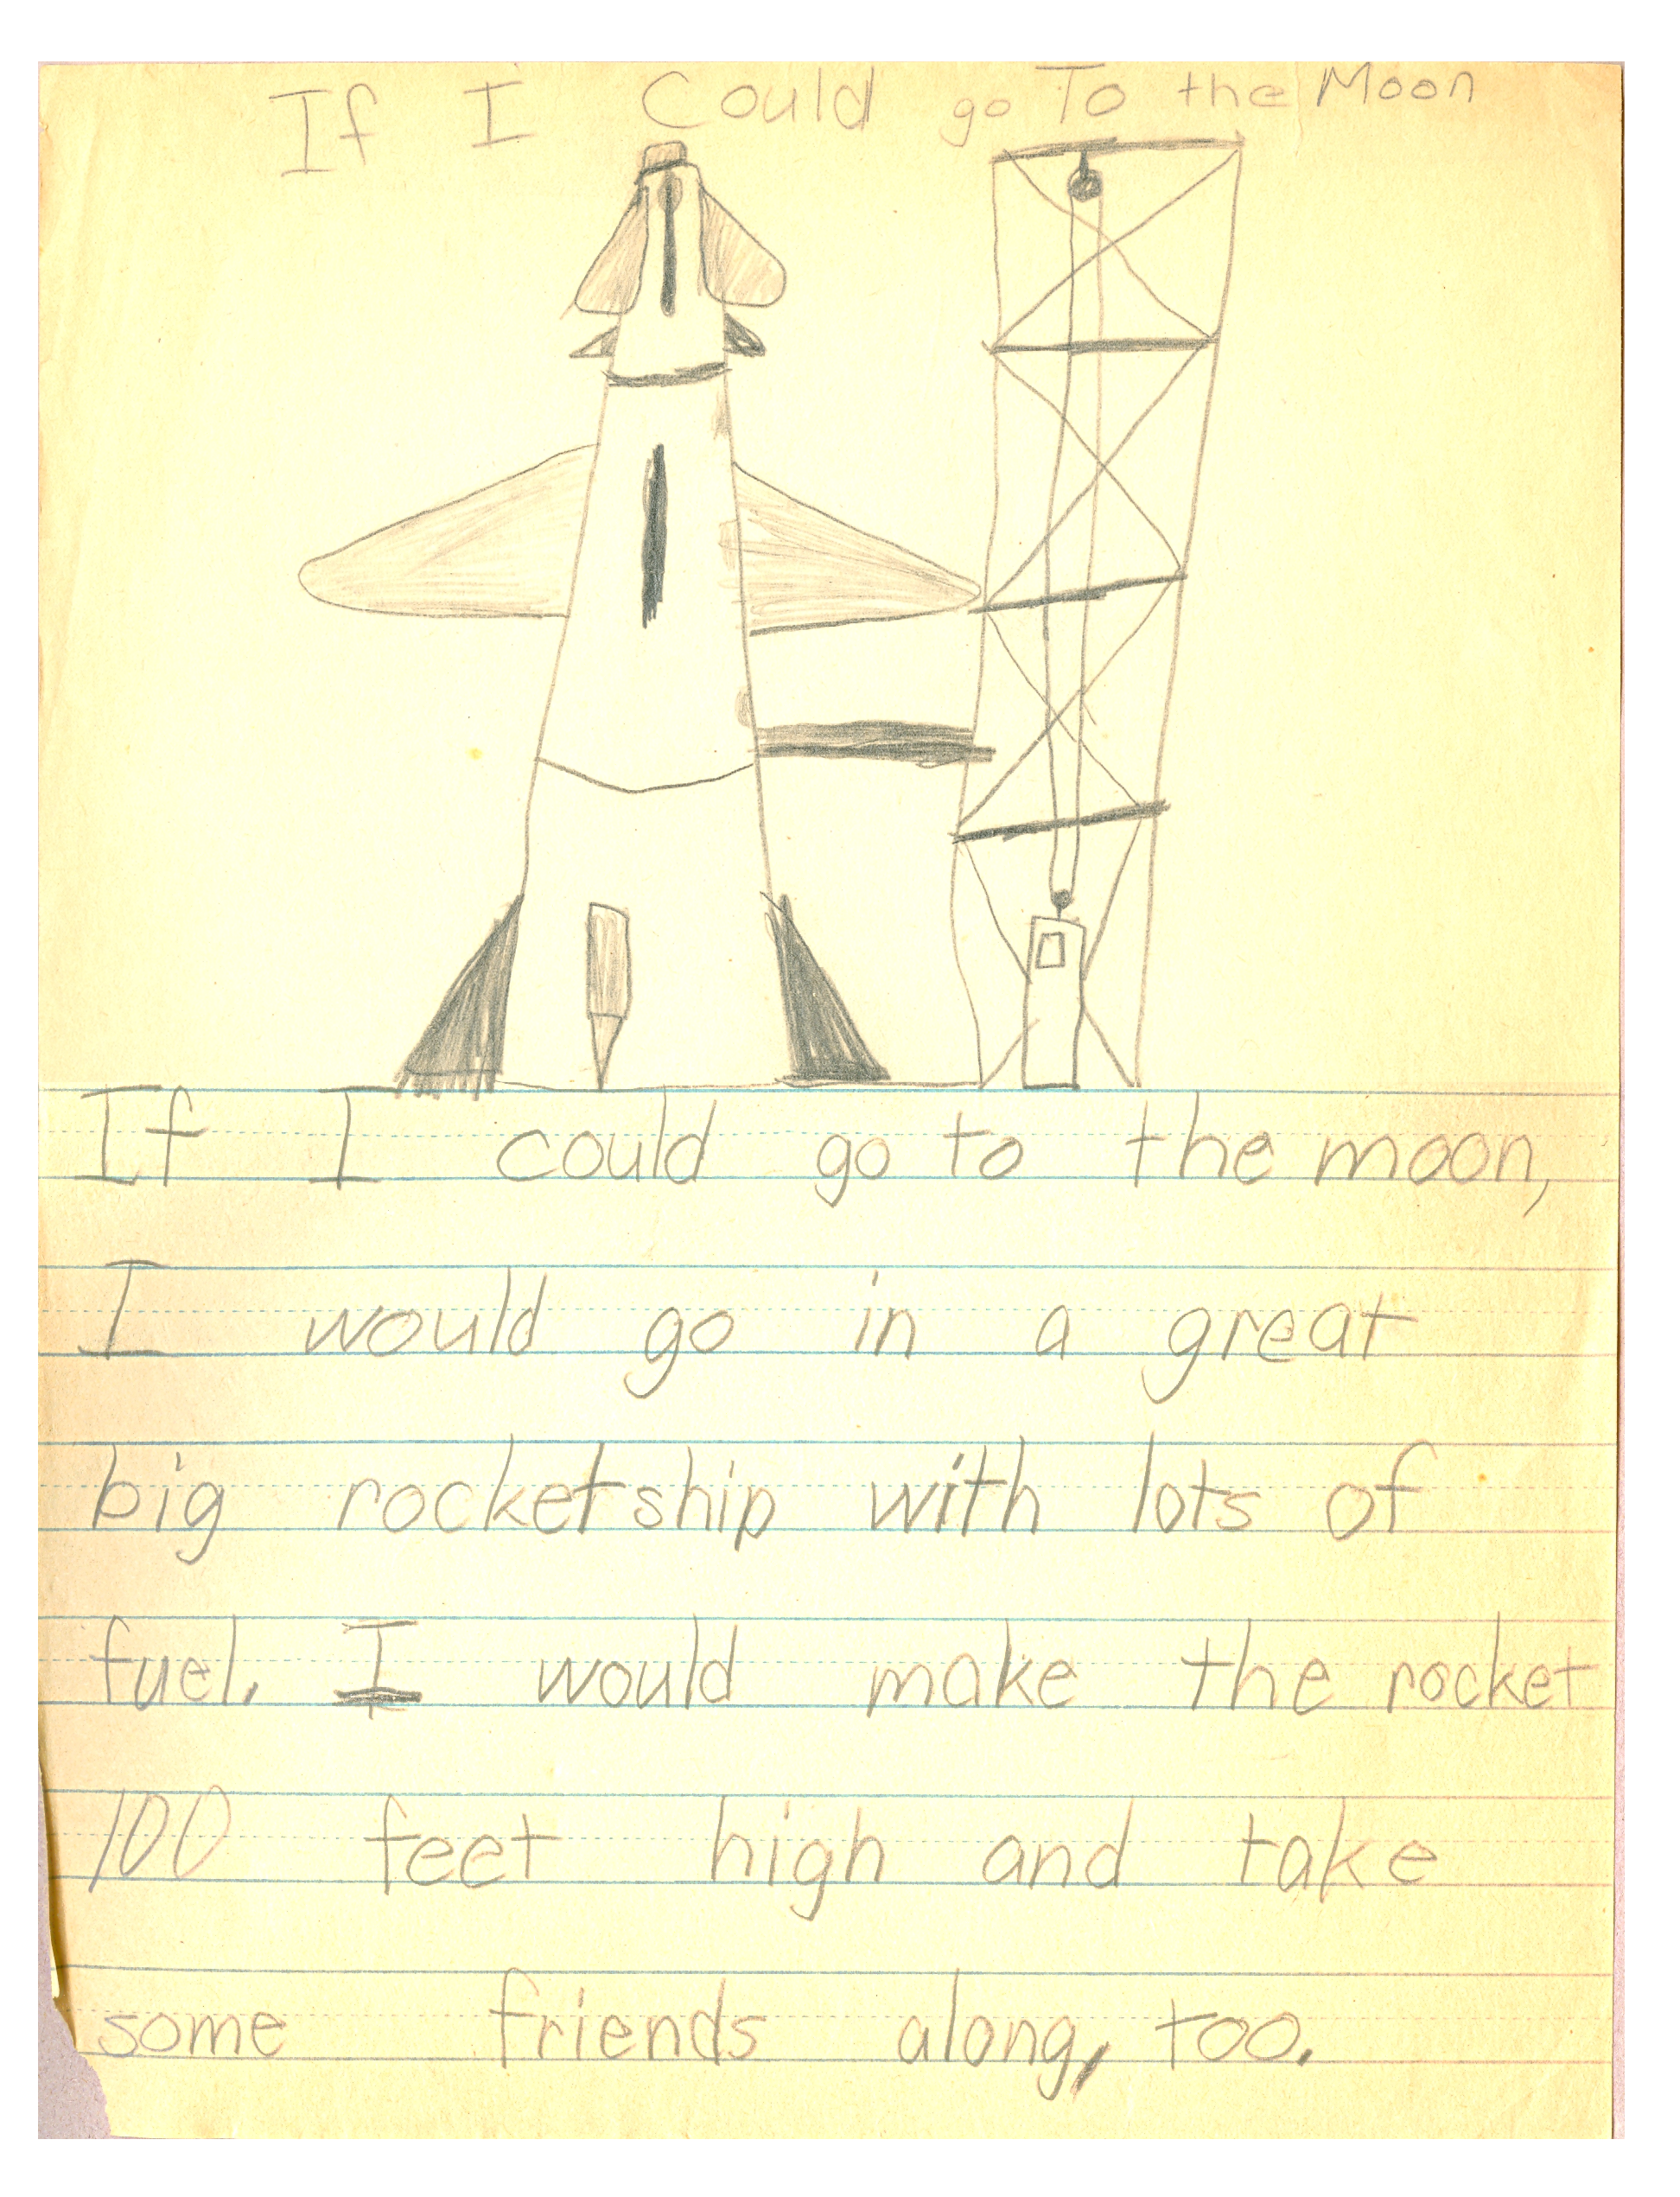 If I Could go To the Moon
If I could go to the moon,
I would go in a great
big rocketship with lots of
fuel. I would make the rocket
100 feet high and take
some friends along, too.